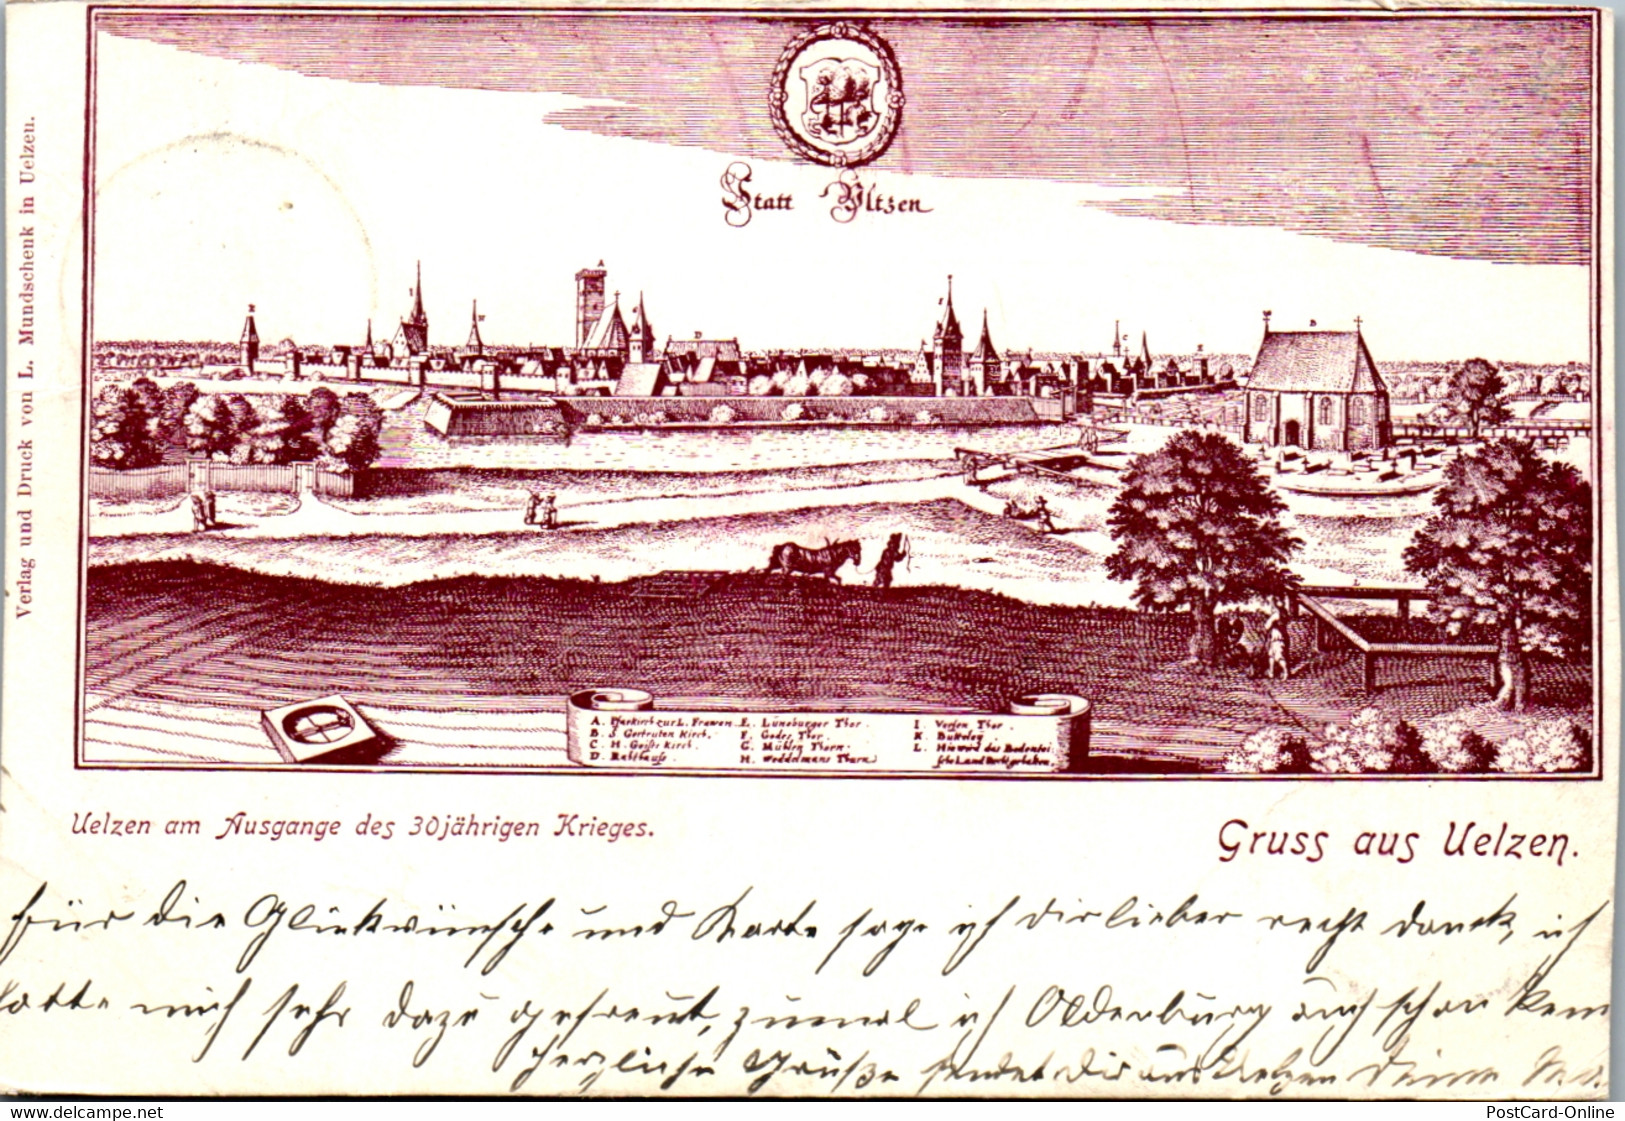 Verlag und Druck von L. Mundschenk in Uelzen.
Statt Vltzen
A. Pfarkirch zur L. Frawen.
B. S. Gertruten Kirch.
C. H. Geistes Kirch.
D. Rahthauss.
E. Lüneburger Thor.
F. Gudes Thor.
G. Mühlen Thorn.
H. Weddelmans Thurn
I. Vorsen Thor
K. Butteley
L. das Bodentei
Uelzen am Ausgange des 30jährigen Krieges.
Gruss aus Uelzen.
für die Glückwünsche und Karte sage ich dir lieber recht Dank, ich
hatte mich sehr dazu gefreut, zumal ich Oldenburg auch schon kenn
herzliche Grüße sendet Dir aus Uelzen Deine
PostCard-Online
www.delcampe.net